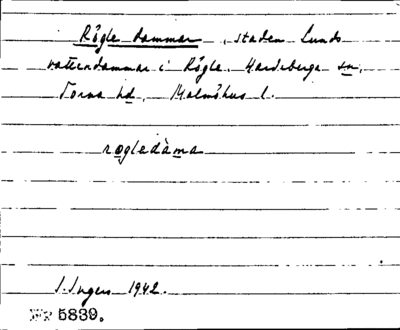 Rögle dammar, staden Lunds
vattendammar i Rögle. Hardeberga sn,
Torna hd, Malmöhus l.
røgledàma
I. Ingers 1942.
Nr 5839.